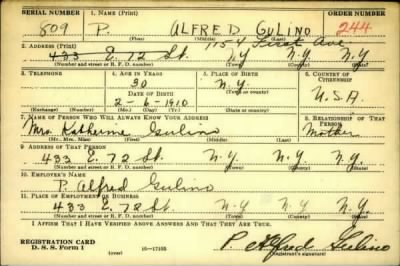 SERIAL NUMBER 1. NAME (Print) ORDER NUMBER
809 P. ALFRED GULINO 244
(First) (Middle) (Last)
1154 First Ave
2. ADDRESS (Print)
433 E. 72 St. N.Y. N.Y. N.Y.
(Number and street or R. F. D. number) (Town) (County) (State)
3. TELEPHONE 4. AGE IN YEARS 5. PLACE OF BIRTH 6. COUNTRY OF CITIZENSHIP
30 N.Y.
DATE OF BIRTH (Town or county)
2-6-1910 U.S.A.
(Exchange) (Number) (Mo.) (Day) (Yr.) (State or country)
7. NAME OF PERSON WHO WILL ALWAYS KNOW YOUR ADDRESS 8. RELATIONSHIP OF THAT PERSON
Mrs. Katherine Gulino Mother
(Mr., Mrs., Miss) (First) (Middle) (Last)
9. ADDRESS OF THAT PERSON
433 E. 72 St. N.Y. N.Y. N.Y.
(Number and street or R. F. D. number) (Town) (County) (State)
10. EMPLOYER'S NAME
P. Alfred Gulino
11. PLACE OF EMPLOYMENT OR BUSINESS
433 E. 72 St. N.Y. N.Y. N.Y.
(Number and street or R. F. D. number) (Town) (County) (State)
I AFFIRM THAT I HAVE VERIFIED ABOVE ANSWERS AND THAT THEY ARE TRUE.
REGISTRATION CARD
D. S. S. Form 1 (over) P. Alfred Gulino
(Registrant's signature)